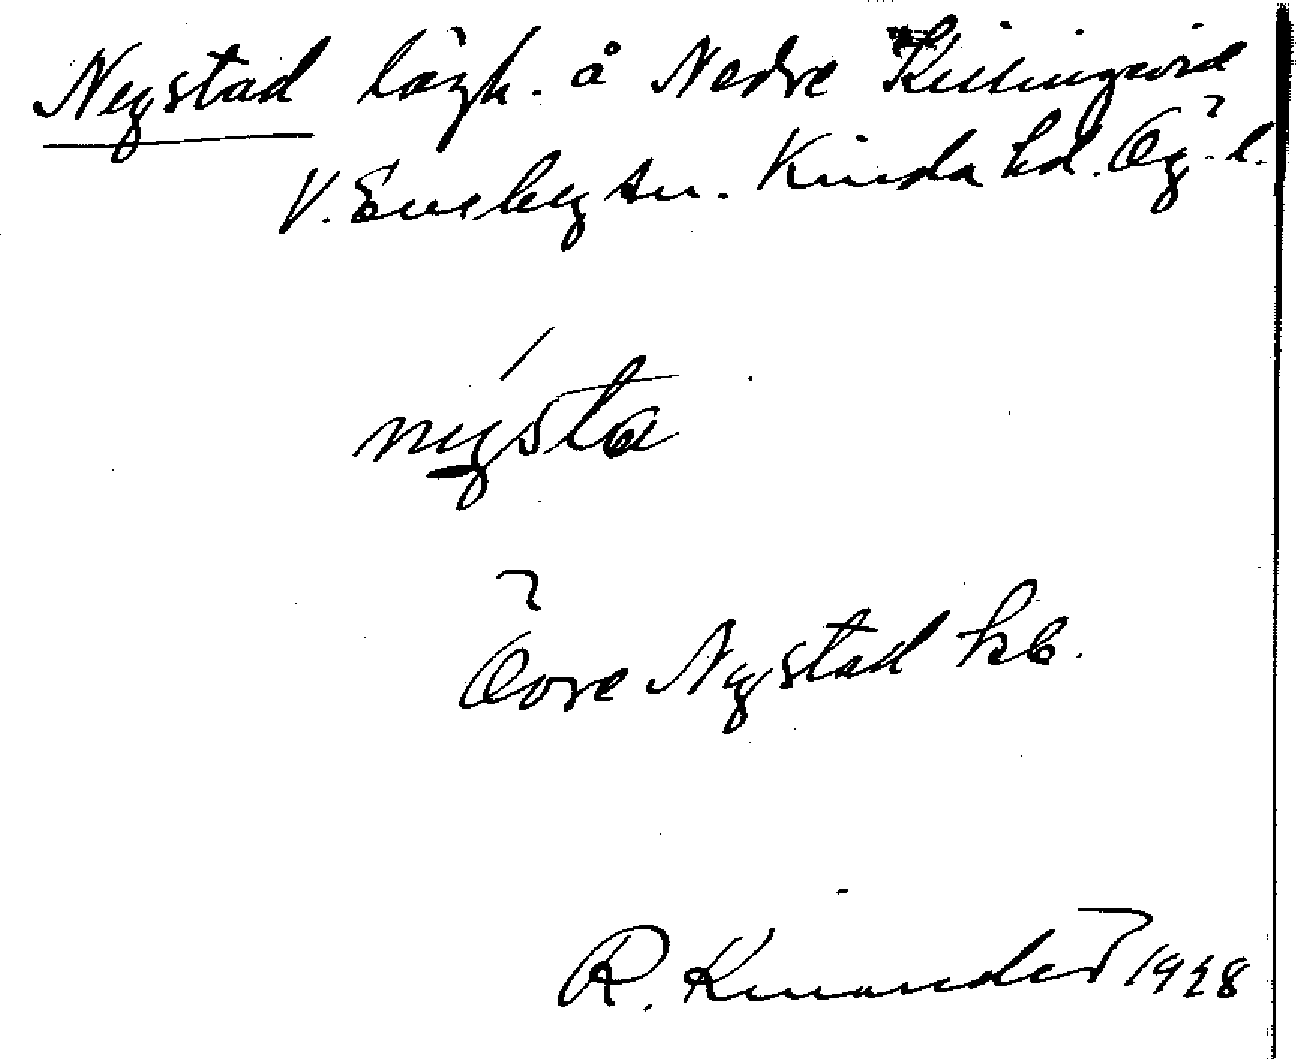 Nystad lägh. å Nedre Killingevid
V. Eneby sn. Kinda hd. Ög. l.
nysta
Övre Nystad kb.
R. Kinander 1928